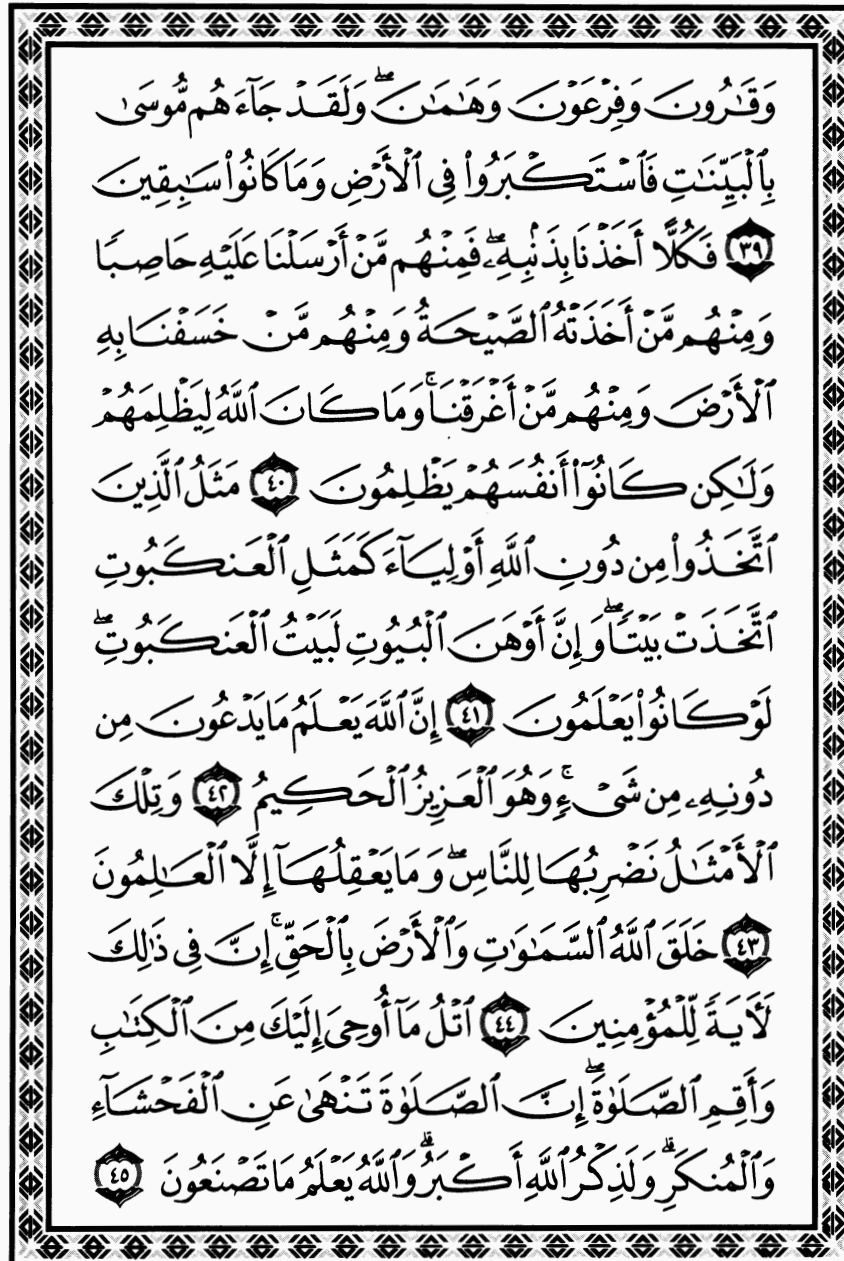 وَقَٰرُونَ وَفِرۡعَوۡنَ وَهَٰمَٰنَۖ وَلَقَدۡ جَآءَهُم مُّوسَىٰ
بِٱلۡبَيِّنَٰتِ فَٱسۡتَكۡبَرُواْ فِي ٱلۡأَرۡضِ وَمَا كَانُواْ سَٰبِقِينَ
٣٩ فَكُلًّا أَخَذۡنَا بِذَنۢبِهِۦۖ فَمِنۡهُم مَّنۡ أَرۡسَلۡنَا عَلَيۡهِ حَاصِبٗا
وَمِنۡهُم مَّنۡ أَخَذَتۡهُ ٱلصَّيۡحَةُ وَمِنۡهُم مَّنۡ خَسَفۡنَا بِهِ
ٱلۡأَرۡضَ وَمِنۡهُم مَّنۡ أَغۡرَقۡنَاۚ وَمَا كَانَ ٱللَّهُ لِيَظۡلِمَهُمۡ
وَلَٰكِن كَانُوٓاْ أَنفُسَهُمۡ يَظۡلِمُونَ ٤٠ مَثَلُ ٱلَّذِينَ
ٱتَّخَذُواْ مِن دُونِ ٱللَّهِ أَوۡلِيَآءَ كَمَثَلِ ٱلۡعَنكَبُوتِ
ٱتَّخَذَتۡ بَيۡتٗاۖ وَإِنَّ أَوۡهَنَ ٱلۡبُيُوتِ لَبَيۡتُ ٱلۡعَنكَبُوتِۖ
لَوۡ كَانُواْ يَعۡلَمُونَ ٤١ إِنَّ ٱللَّهَ يَعۡلَمُ مَا يَدۡعُونَ مِن
دُونِهِۦ مِن شَيۡءٖۚ وَهُوَ ٱلۡعَزِيزُ ٱلۡحَكِيمُ ٤٢ وَتِلۡكَ
ٱلۡأَمۡثَٰلُ نَضۡرِبُهَا لِلنَّاسِۖ وَمَا يَعۡقِلُهَآ إِلَّا ٱلۡعَٰلِمُونَ
٤٣ خَلَقَ ٱللَّهُ ٱلسَّمَٰوَٰتِ وَٱلۡأَرۡضَ بِٱلۡحَقِّۚ إِنَّ فِي ذَٰلِكَ
لَأٓيَةٗ لِّلۡمُؤۡمِنِينَ ٤٤ ٱتۡلُ مَآ أُوحِيَ إِلَيۡكَ مِنَ ٱلۡكِتَٰبِ
وَأَقِمِ ٱلصَّلَوٰةَۖ إِنَّ ٱلصَّلَوٰةَ تَنۡهَىٰ عَنِ ٱلۡفَحۡشَآءِ
وَٱلۡمُنكَرِۗ وَلَذِكۡرُ ٱللَّهِ أَكۡبَرُۗ وَٱللَّهُ يَعۡلَمُ مَا تَصۡنَعُونَ ٤٥